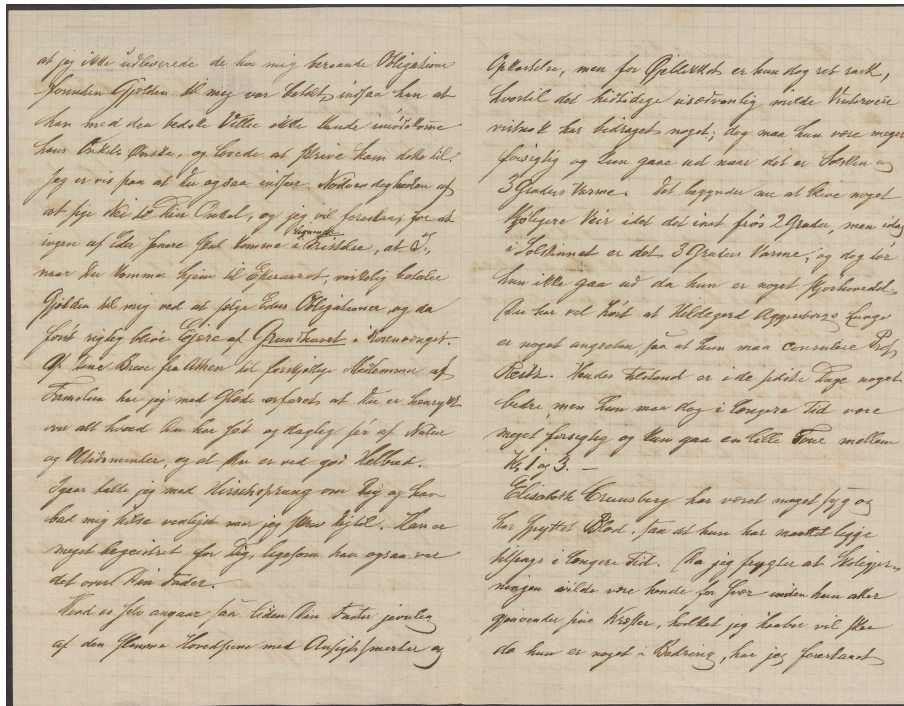 at jeg ikke udleverede de hos mig værende Obligationer
forinden Gjælden til mig var betalt, indsaa han at
han med den bedste Villie ikke kunde imødekomme
hans Onkels Ønske, og lovede at skrive ham dette til.
Jeg er vis paa at Du ogsaa indseer Nødvendigheden af
at sige Nei til Din Onkel, og jeg vil foreslaa, for at
ingen af Eder senere skal komme i Fristelse, at I,
naar Du kommer hjem til Efteraaret, virkelig betaler
Gjælden til mig ved at sælge Eders Obligationer, og da
først rigtig blive Ejere af Grundhuset i Rosenvænget.
Af Dine Breve fra Athen til forskjellige Medlemmer af
Familien har jeg med Glæde erfaret at Du er henrykt
over alt hvad Du har seet og daglig seer af Natur
og Oldsminder, og at Du er ved god Helbred.
Igaar talte jeg med Hirschsprung om Dig og han
bad mig hilse venligst naar jeg skrev Dig til. Han er
meget begeistret for Dig, ligesom han ogsaa var
det over Din Fader.
Hvad os selv angaar saa lider Din Faster jevnlig
af den slemme Hovedpine med Ansigtssmerter og
Opkastelse, men for Øieblikket er hun dog ret rask,
hvortil det hidtidige usædvanlig milde Vinterveir
vistnok har bidraget noget; dog maa hun være meget
forsigtig og kun gaae ud naar det er Solskin og
3 Graders Varme. Det begynder nu at blive noget
kjøligere Veir idet det inat frøs 2 Grader, men idag
i Solskinnet er det 3 Graders Varme, og dog tør
hun ikke gaa ud da hun er noget
Du har vel hørt at Hildegard Aggersborgs Lunge
er noget angreben saa at hun maa consulere Prof.
Hendes Tilstand er i de sidste Dage noget
bedre men hun maa dog i længere Tid være
meget forsigtig og kun gaa en lille Tour mellem
Kl. 1 og 3. —
Elisabeth har været noget syg og
har spyttet Blod, saa at hun har maattet ligge
tilsengs i længere Tid. Da jeg frygter at
ningen vilde være hende for svær inden hun atter
gjenvinder sine Kræfter, hvilket jeg haaber vil skee
da hun er noget i Bedring, har jeg foreslaaet